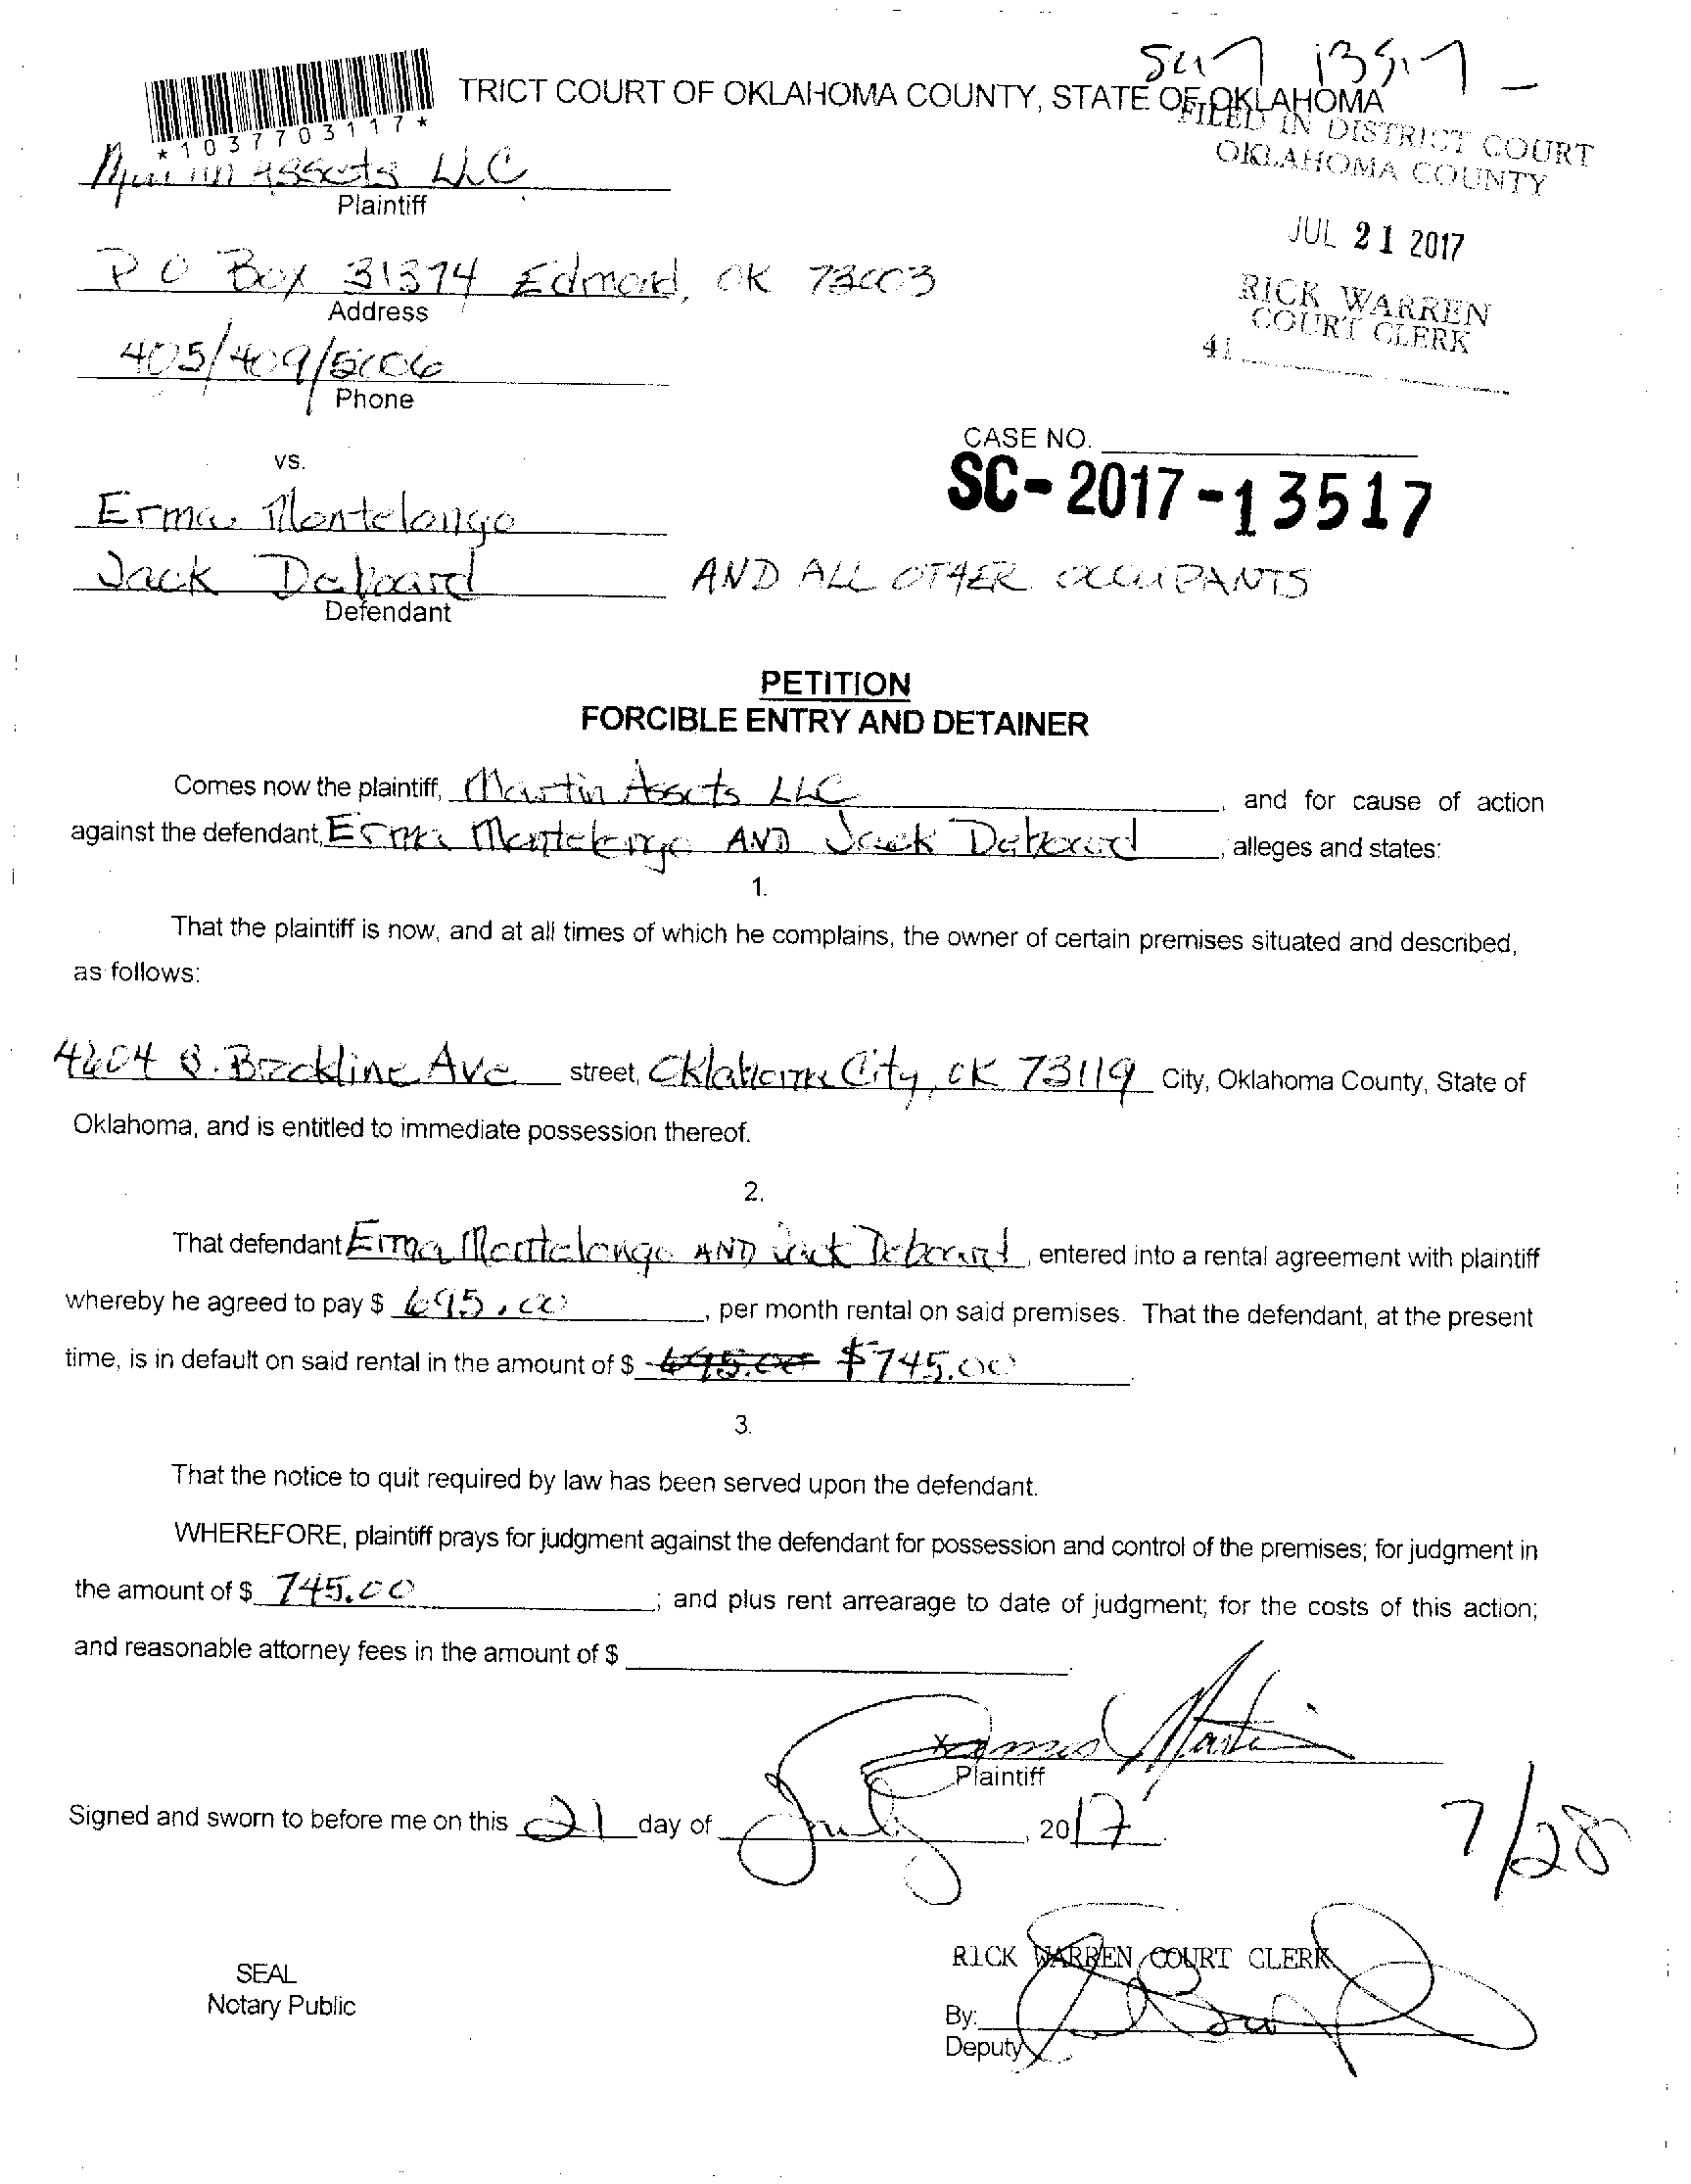 SC17 13517 -
TRICT COURT OF OKLAHOMA COUNTY, STATE OF OKLAHOMA
*1037703117*
FILED IN DISTRICT COURT
OKLAHOMA COUNTY
Martin Assets LLC
Plaintiff
JUL 21 2017
P O Box 31374 Edmond, OK 73003
Address
RICK WARREN
COURT CLERK
41
405/409/5006
Phone
CASE NO.
vs.
SC-2017-13517
Erma Montelongo
Jack Deboard AND ALL OTHER OCCUPANTS
Defendant
PETITION
FORCIBLE ENTRY AND DETAINER
Comes now the plaintiff, Martin Assets LLC, and for cause of action
against the defendant, Erma Montelongo AND Jack Deboard, alleges and states:
1.
That the plaintiff is now, and at all times of which he complains, the owner of certain premises situated and described,
as follows:
4604 S. Brockline Ave street, Oklahoma City, OK 73119 City, Oklahoma County, State of
Oklahoma, and is entitled to immediate possession thereof.
2.
That defendant Erma Montelongo AND Jack Deboard, entered into a rental agreement with plaintiff
whereby he agreed to pay $ 695.00, per month rental on said premises. That the defendant, at the present
time, is in default on said rental in the amount of $ 695.00 $745.00
3.
That the notice to quit required by law has been served upon the defendant.
WHEREFORE, plaintiff prays for judgment against the defendant for possession and control of the premises; for judgment in
the amount of $ 745.00; and plus rent arrearage to date of judgment; for the costs of this action;
and reasonable attorney fees in the amount of $
Martin
Plaintiff
Signed and sworn to before me on this 21 day of July, 2017
7/28
RICK WARREN COURT CLERK
SEAL
Notary Public
By:
Deputy